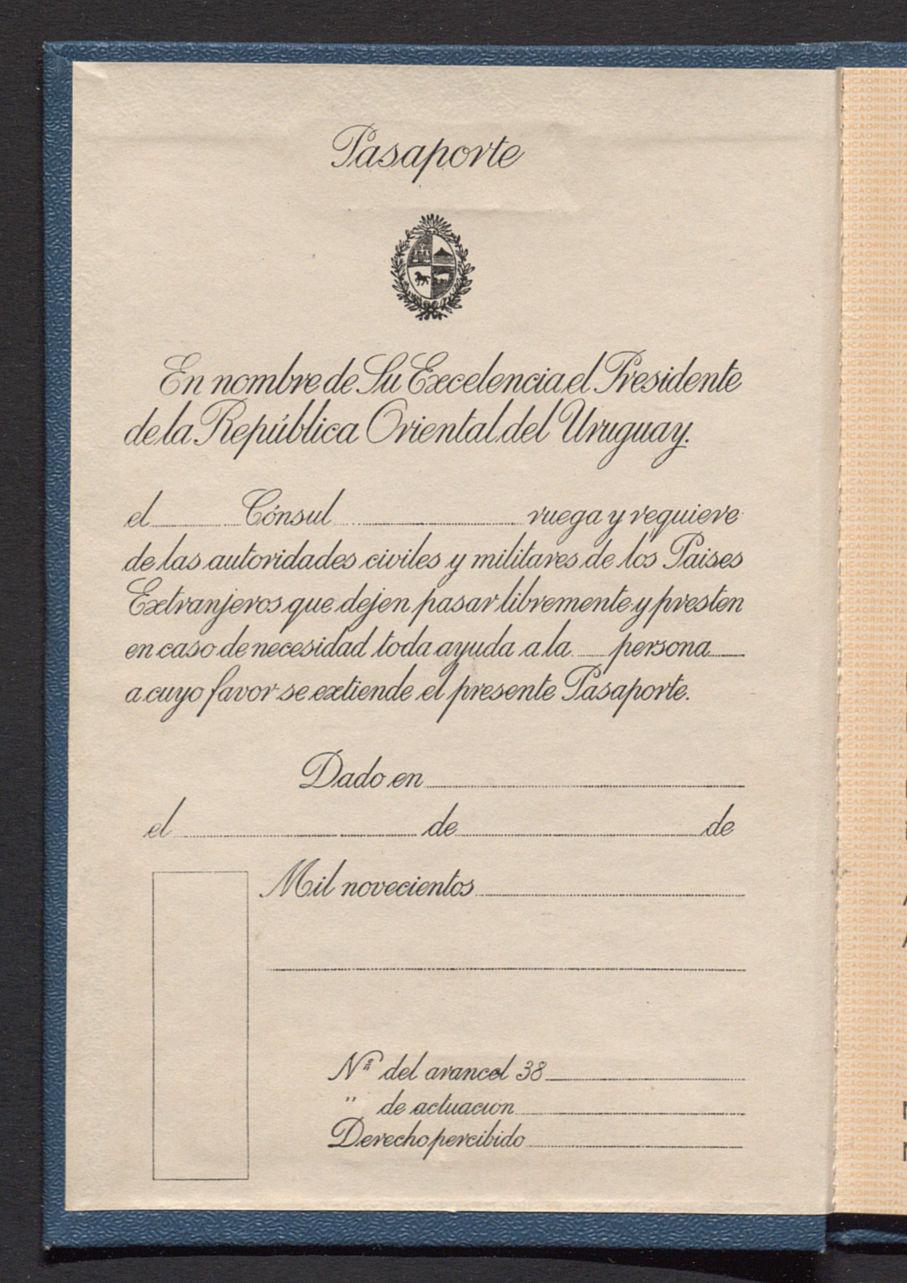 Pasaporte
En nombre de Su Excelencia el Presidente
de la República Oriental del Uruguay.
el ........ Cónsul ................ ruega y requiere
de las autoridades civiles y militares de los Paises
Extranjeros que dejen pasar libremente y presten
en caso de necesidad toda ayuda a la .... persona ....
a cuyo favor se extiende el presente Pasaporte.
Dado en ................
el ................ de ................ de
Mil novecientos ................
Nº del arancel 38 ................
" de actuacion ................
Derecho percibido ................